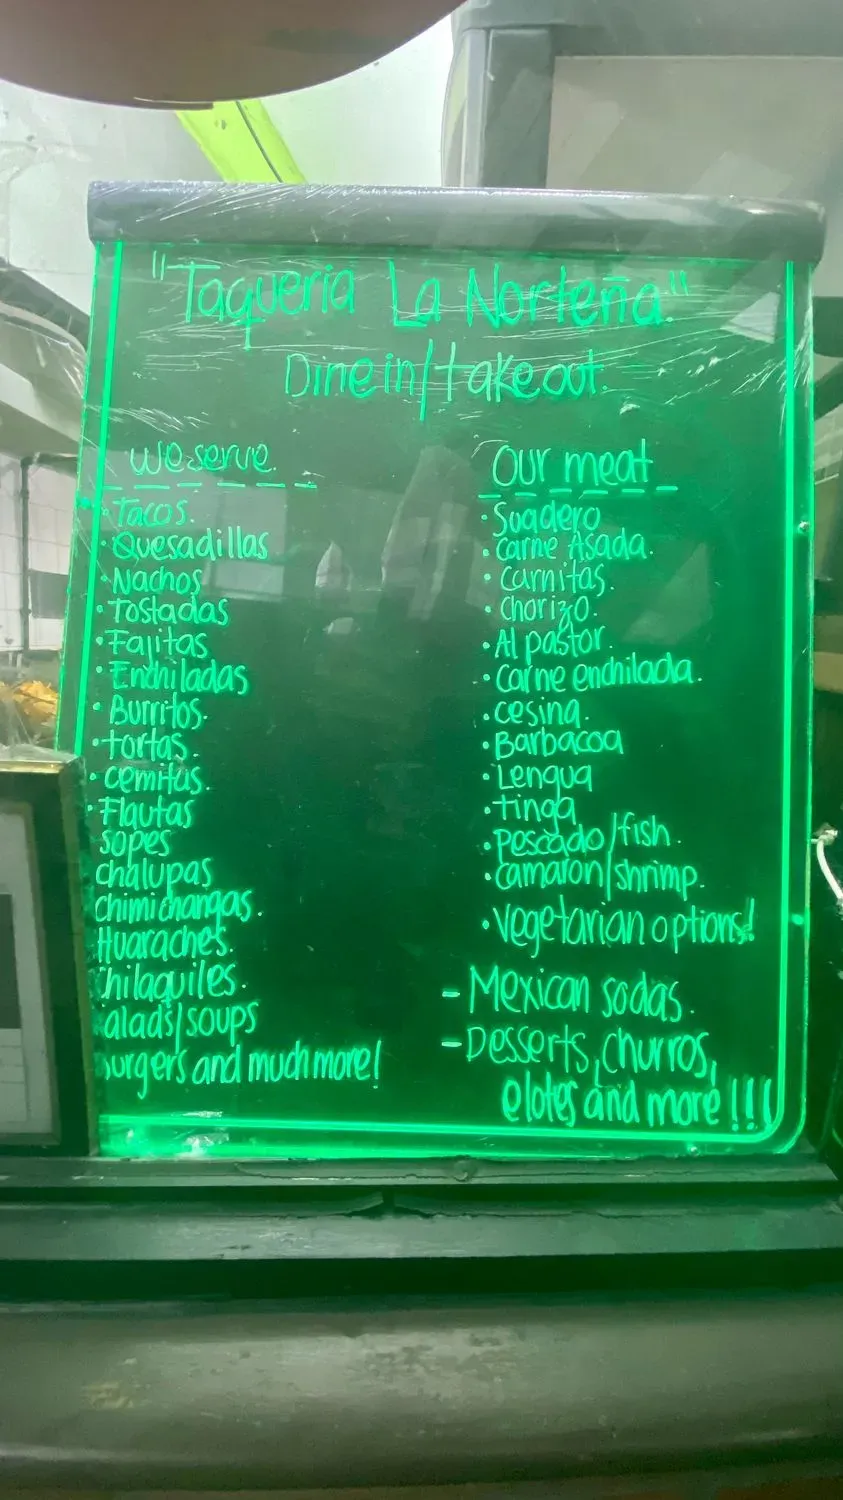 "Taqueria La Norteña."
Dine in/take out.
we serve.
• Tacos.
• Quesadillas
• Nachos
• Tostadas
• Fajitas
• Enchiladas
• Burritos.
• tortas.
• cemitas.
• Flautas
sopes
chalupas
chimichangas.
Huaraches.
hilaquiles.
alads/soups
urgers and much more!
our meat
• Suadero
• carne Asada.
• carnitas.
• chorizo.
• Al pastor.
• carne enchilada.
• cesina.
• Barbacoa
• Lengua
• tinga
• pescado/fish.
• camaron/shrimp.
• vegetarian options!
- Mexican sodas.
- Desserts, churros,
elotes and more !!!